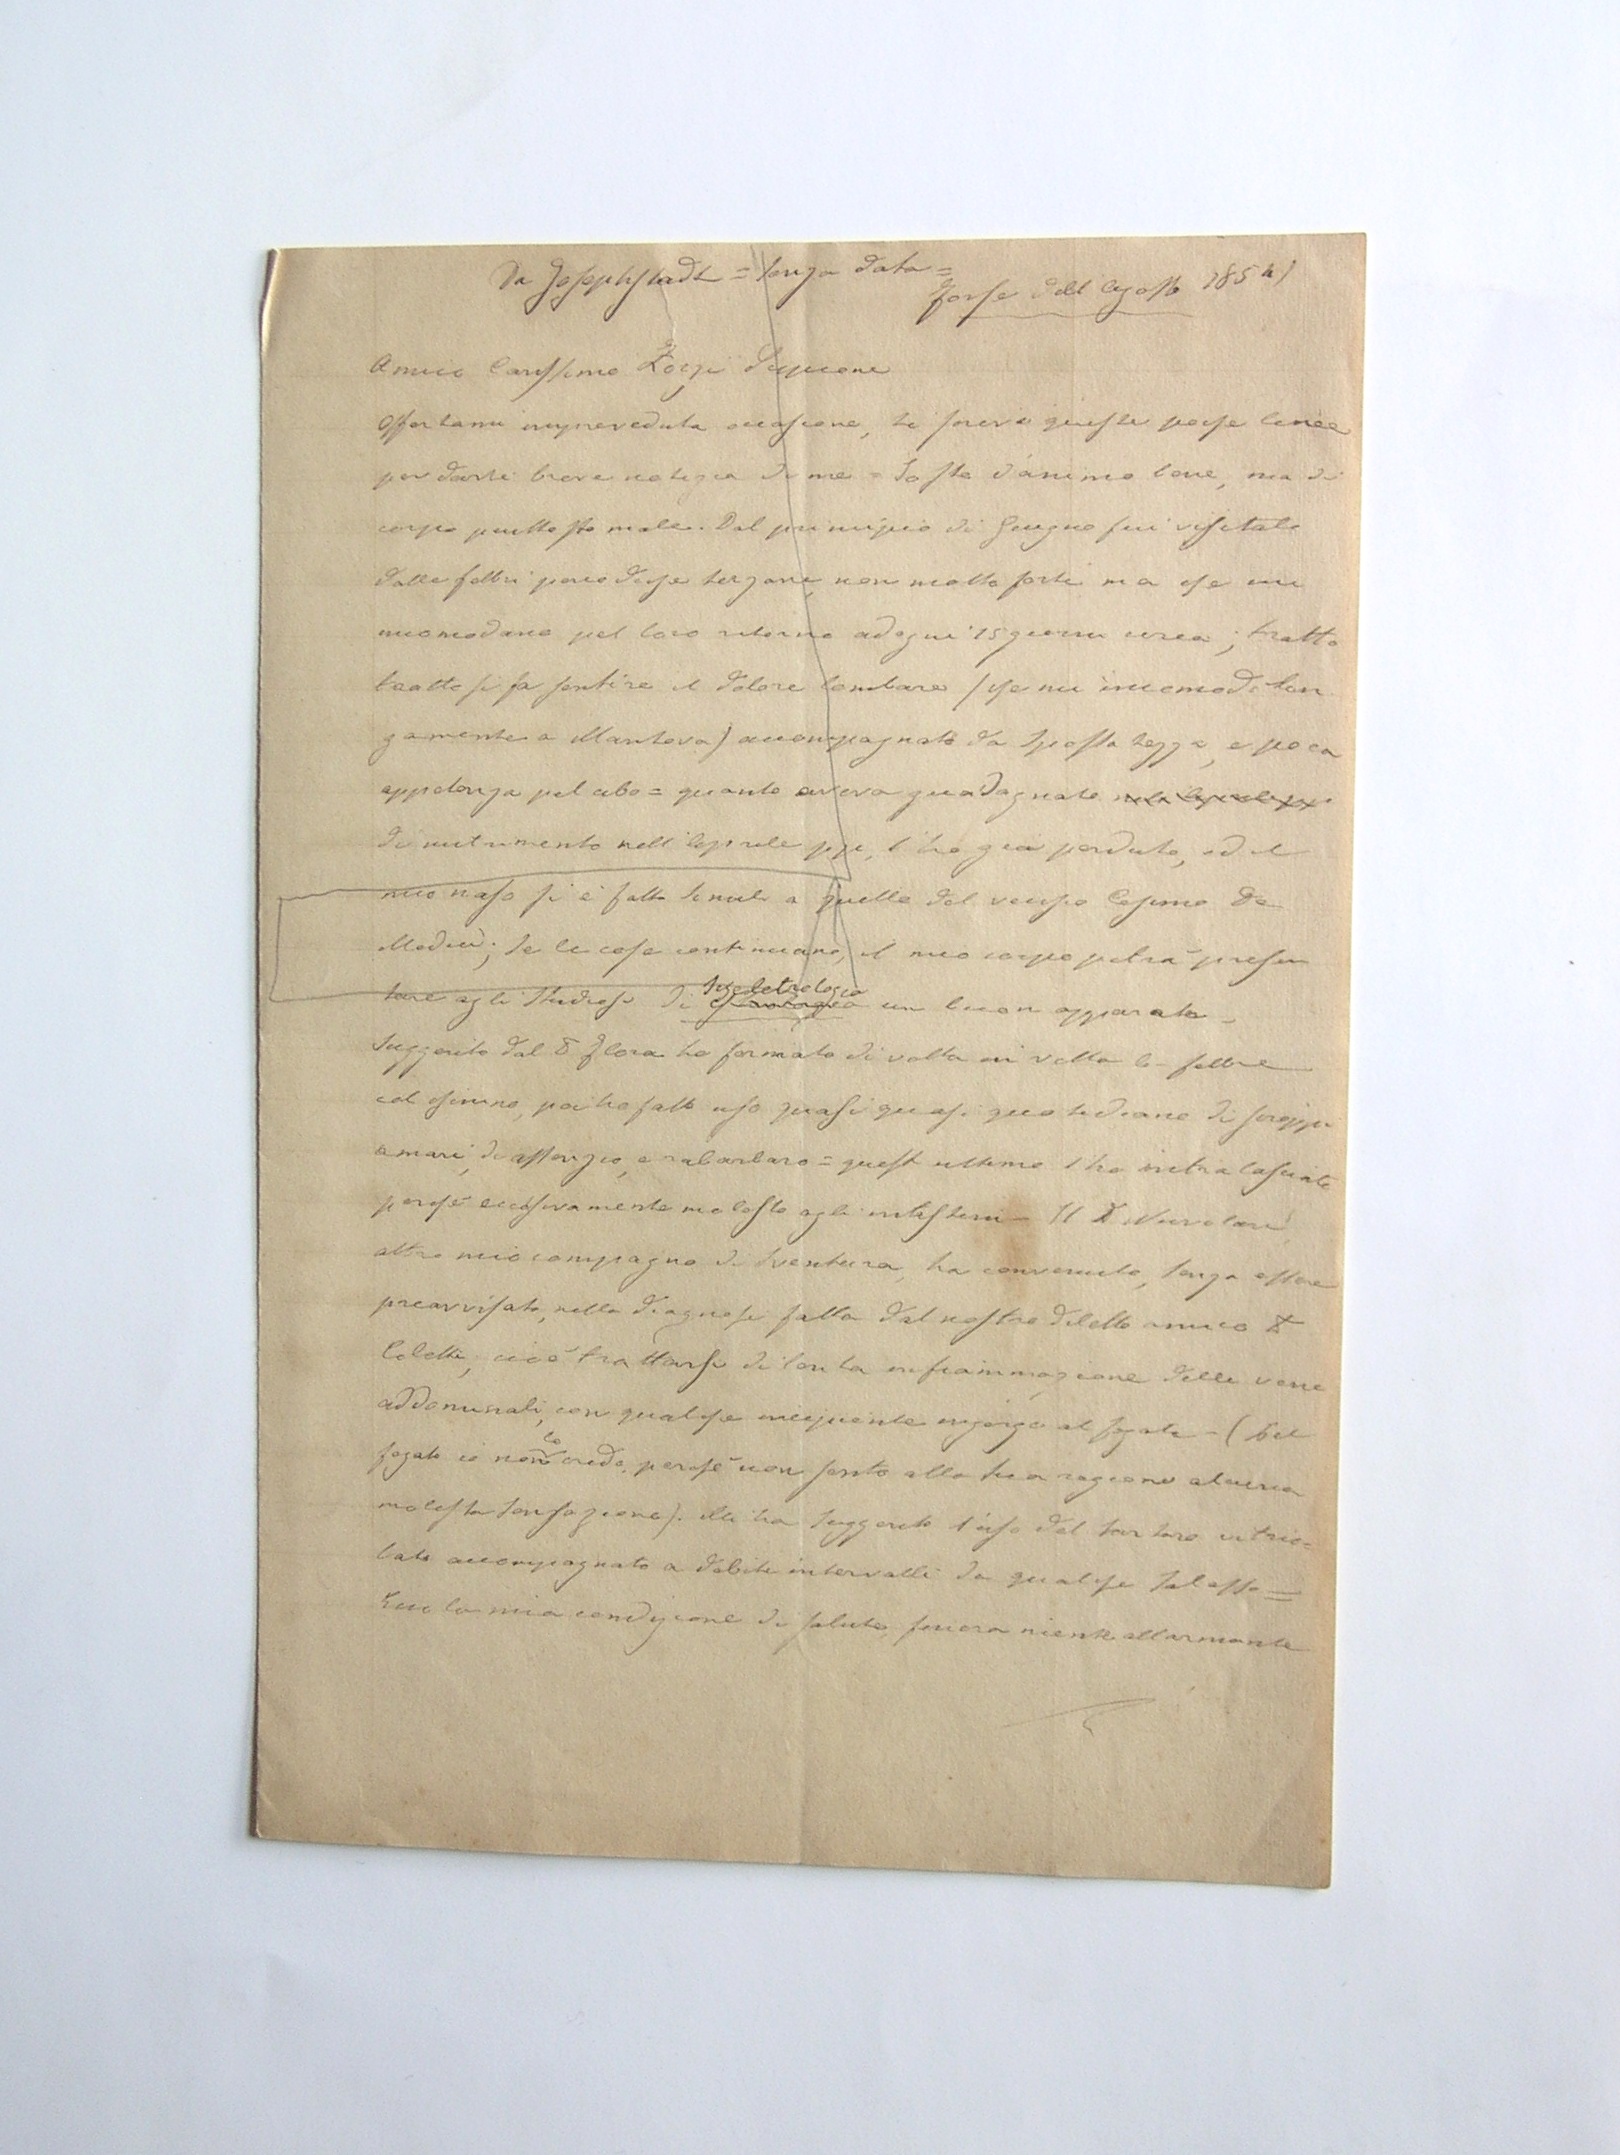 Da Josephstadt = senza data =
forse dell'Agosto 1854)
Amico Carissimo Zorzi Scipione
Offertami impreveduta occasione, ti scrivo queste poche linee
per darti breve notizia di me = Io sto d'animo bene, ma di
corpo piuttosto male. Dal principio di Giugno fui visitato
dalle febbri periodiche terzane, non molto forti ma che mi
incomodano pel loro ritorno ad ogni 15 giorni circa; tratto
tratto si fa sentire il dolore lombare (che mi incomodò lun
gamente a Mantova) accompagnato da spessa tosse, e poca
appetenza pel cibo = quanto aveva guadagnato
di nutrimento nell'Aprile pp., l'ho già perduto, ed il
mio naso si è fatto simile a quello del vecchio Cosimo de
Medici; se le cose continuano, il mio corpo potrà presen
tare agli studiosi di scheletrologia un buon apparato –
Suggerito dal D. Flora ho fermato di volta in volta la febbre
col chinino, poi ho fatto uso quasi quasi quotidiano di siroppi
amari, di assenzio, e rabarbaro = quest'ultimo l'ho intralasciato
perchè eccessivamente molesto agli intestini – Il D. Nuvolari,
altro mio compagno di sventura, ha convenuto, senza essere
preavvisato, nella diagnosi fatta dal nostro diletto amico D.
Coletti, cioè trattarsi di lenta infiammazione delle vene
addominali, con qualche incipiente ingorgo al fegato – (Del
fegato io non lo credo, perchè non sento alla sua regione alcuna
molesta sensazione). Mi ha suggerito l'uso del tartaro vitrio=
lato accompagnato a debiti intervalli da qualche salasso =
Ecco la mia condizione di salute, finora niente allarmante